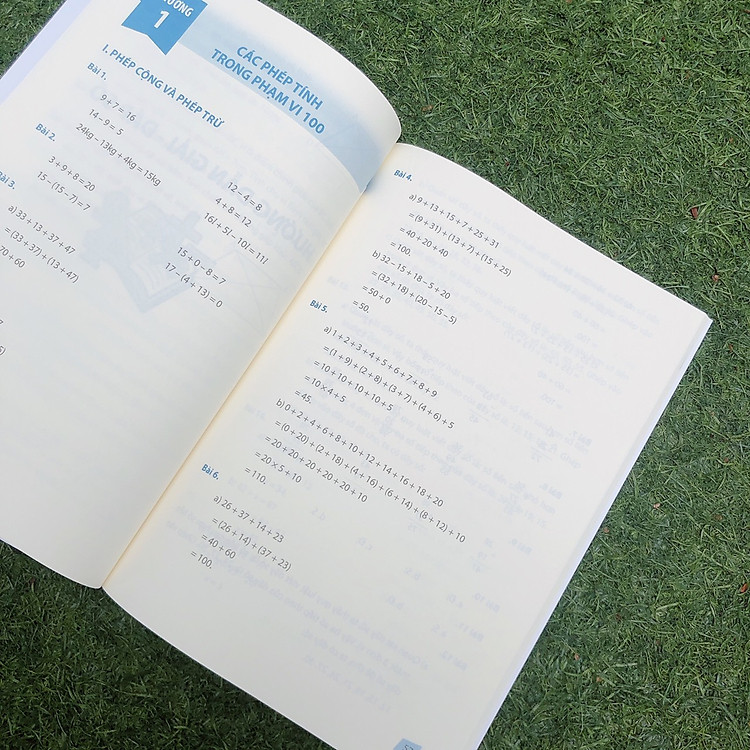 ƯƠNG
1
CÁC PHÉP TÍNH
TRONG PHẠM VI 100
I. PHÉP CỘNG VÀ PHÉP TRỪ
Bài 1.
9 + 7 = 16
12 – 4 = 8
14 – 9 = 5
4 + 8 = 12
24kg – 13kg + 4kg = 15kg
16l + 5l – 10l = 11l
Bài 2.
3 + 9 + 8 = 20
15 + 0 – 8 = 7
15 – (15 – 7) = 7
17 – (4 + 13) = 0
Bài 3.
a) 33 + 13 + 37 + 47
= (33 + 37) + (13 + 47)
70 + 60
Bài 4.
a) 9 + 13 + 15 + 7 + 25 + 31
= (9 + 31) + (13 + 7) + (15 + 25)
= 40 + 20 + 40
= 100.
b) 32 – 15 + 18 – 5 + 20
= (32 + 18) + (20 – 15 – 5)
= 50 + 0
= 50.
Bài 5.
a) 1 + 2 + 3 + 4 + 5 + 6 + 7 + 8 + 9
= (1 + 9) + (2 + 8) + (3 + 7) + (4 + 6) + 5
= 10 + 10 + 10 + 10 + 5
= 10 × 4 + 5
= 45.
b) 0 + 2 + 4 + 6 + 8 + 10 + 12 + 14 + 16 + 18 + 20
= (0 + 20) + (2 + 18) + (4 + 16) + (6 + 14) + (8 + 12) + 10
= 20 + 20 + 20 + 20 + 20 + 10
= 20 × 5 + 10
= 110.
Bài 6.
a) 26 + 37 + 14 + 23
= (26 + 14) + (37 + 23)
= 40 + 60
= 100.